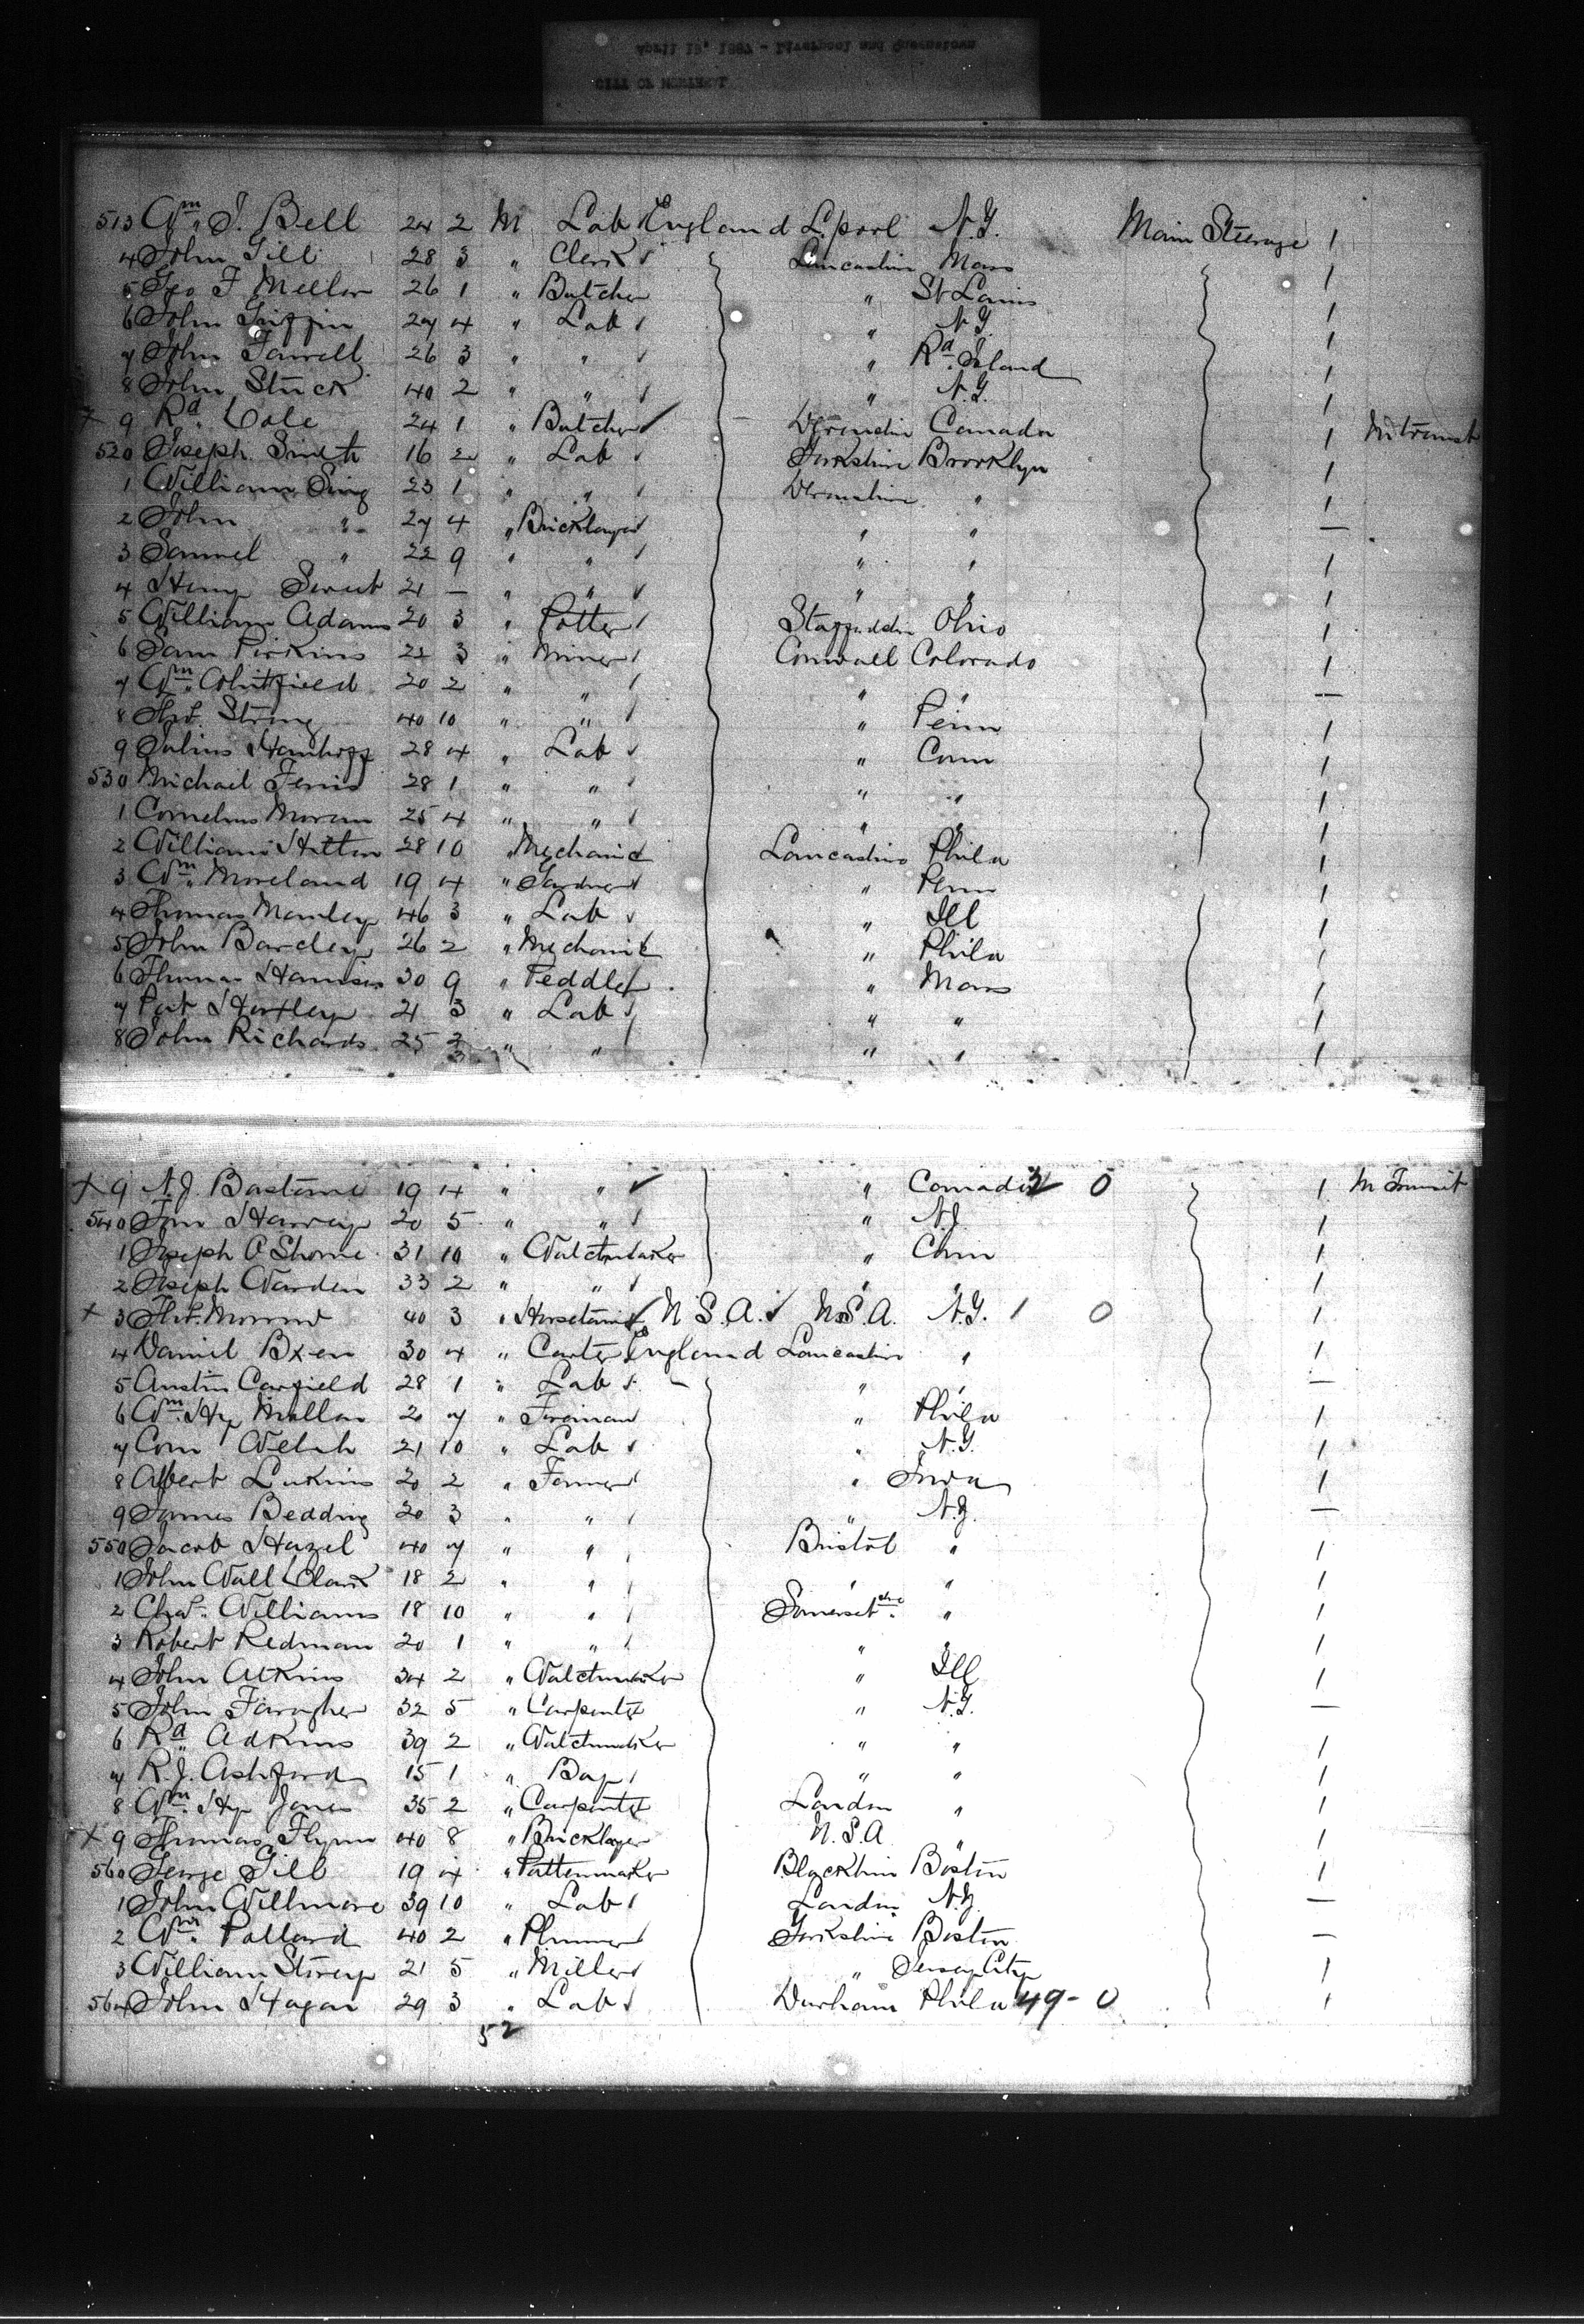 April 18, 1887 - Liverpool and Queenstown
CITY OF MONTREAL
513 Wm J. Bell 24 2 M Lab England L.pool N.Y. Main Steerage 1
4 John Gill 28 3 " Clerk Lancashire Mass 1
5 Geo F Mellor 26 1 " Butcher " St Louis 1
6 John Griffin 24 4 " Lab " N.Y. 1
7 John Farrell 26 3 " " " Rd Island 1
8 John Stuck 40 2 " " " N.Y. 1
x 9 Rd Cole 24 1 " Butcher Devonshire Canada 1 In transit
520 Joseph Smith 16 2 " Lab Yorkshire Brooklyn 1
1 William Sing 23 1 " " Devonshire " 1
2 John " 27 4 " Bricklayer " " —
3 Samuel " 22 9 " " " " 1
4 Henry Sweet 21 — " " " " 1
5 William Adams 20 3 " Potter Ohio 1
6 Sam Perkins 22 3 " Miner Cornwall Colorado 1
7 Wm Whitfield 20 2 " " " " —
8 Thos. Strong 40 10 " " " Penn 1
9 Julius 28 4 " Lab " Conn 1
530 Michael Ferris 28 1 " " " " 1
1 Cornelius Moran 25 4 " " " " 1
2 William Hilton 28 10 " Mechanic Lancashire Phila 1
3 Wm Moreland 19 4 " Gardner " Penn 1
4 Thomas Manley 46 3 " Lab " Ill 1
5 John Barcley 26 2 " Mechanic " Phila 1
6 Thomas Harrison 30 9 " Peddler " Mass 1
7 Pat Hartley 21 3 " Lab " " 1
8 John Richards 25 2 3 " " " " 1
x 9 N.J. Bastome 19 4 " " " Canada 2 0 1 In Transit
540 Tom Harvey 20 5 " " " N.J. 1
1 Joseph O Shorne 31 10 " Watchmaker " Conn 1
2 Joseph Warden 33 2 " " " " 1
x 3 Thos. 40 3 " U.S.A. U.S.A. N.Y. 1 0 1
4 Daniel 30 4 " Carter England Lancashire " 1
5 Austin Carfield 28 1 " Lab " " —
6 Wm Hy Mellor 2 7 " Fireman " Phila 1
7 Corn Welsh 21 10 " Lab " N.Y. 1
8 Albert Lukins 20 2 " Farmer " Iowa 1
9 James Bedding 20 3 " " " N.Y. —
550 Jacob Hazel 40 7 " " Bristol " 1
1 John Wall Clark 18 2 " " " " 1
2 Chas. Williams 18 10 " " Somersetshe " 1
3 Robert Redman 20 1 " " " " 1
4 John Atkins 34 2 " Watchmaker " Ill 1
5 John Faragher 32 5 " Carpenter " N.Y. —
6 Rd Adkins 39 2 " Watchmaker " " 1
7 R.J. Ashford 15 1 " Boy " " 1
8 Wm Hy Jones 35 2 " Carpenter London " 1
x 9 Thomas Flynn 40 8 " Bricklayer U.S.A " 1
560 George Gill 19 4 " Patternmaker Boston 1
1 John Willmore 39 10 " Lab London N.Y. —
2 Wm. Pollard 40 2 " Plummer Yorkshire Boston —
3 William Storey 21 5 " Miller " Jersey City 1
564 John Hagan 29 3 " Lab Durham Phila 49 - 0 1
52